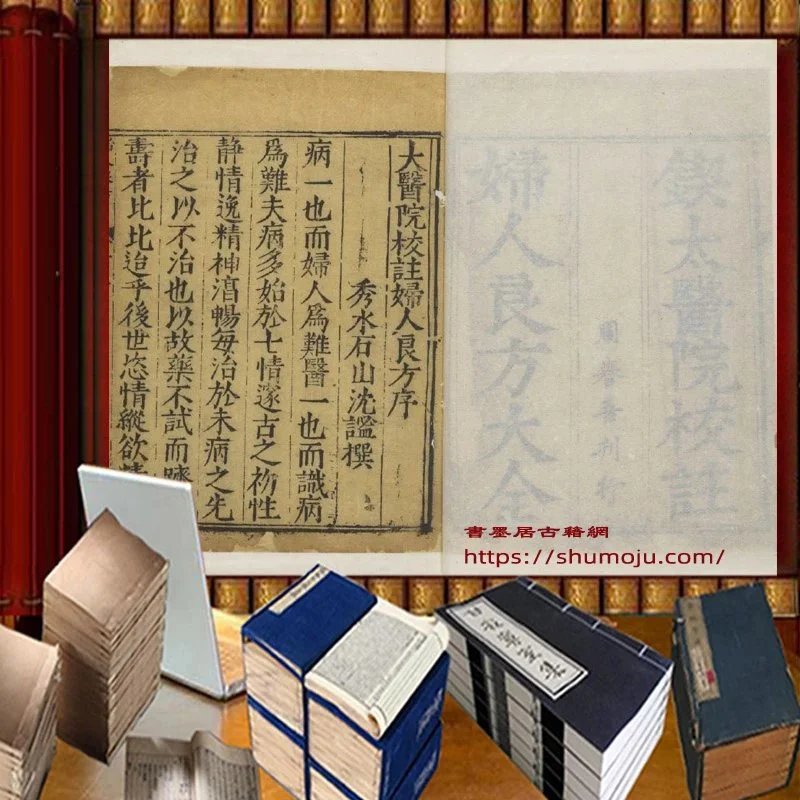 太醫院校註
刊行
婦人良方大全
大醫院校註婦人良方序
秀水石山沈謐撰
病一也而婦人爲難醫一也而識病
爲難夫病多始於七情邃古之初性
静情逸精神湻暢每治於未病之先
治之以不治也以故藥不試而躋
壽者比比迨乎後世恣情縱欲
書墨居古籍網
https://shumoju.com/